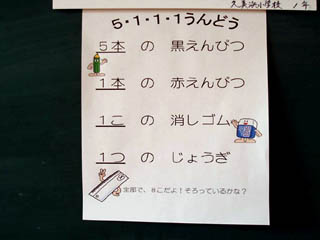 久美浜小学校 1年
5・1・1・1うんどう
5本 の 黒えんぴつ
1本 の 赤えんぴつ
1こ の 消しゴム
1つ の じょうぎ
全部で、8こだよ！そろっているかな？